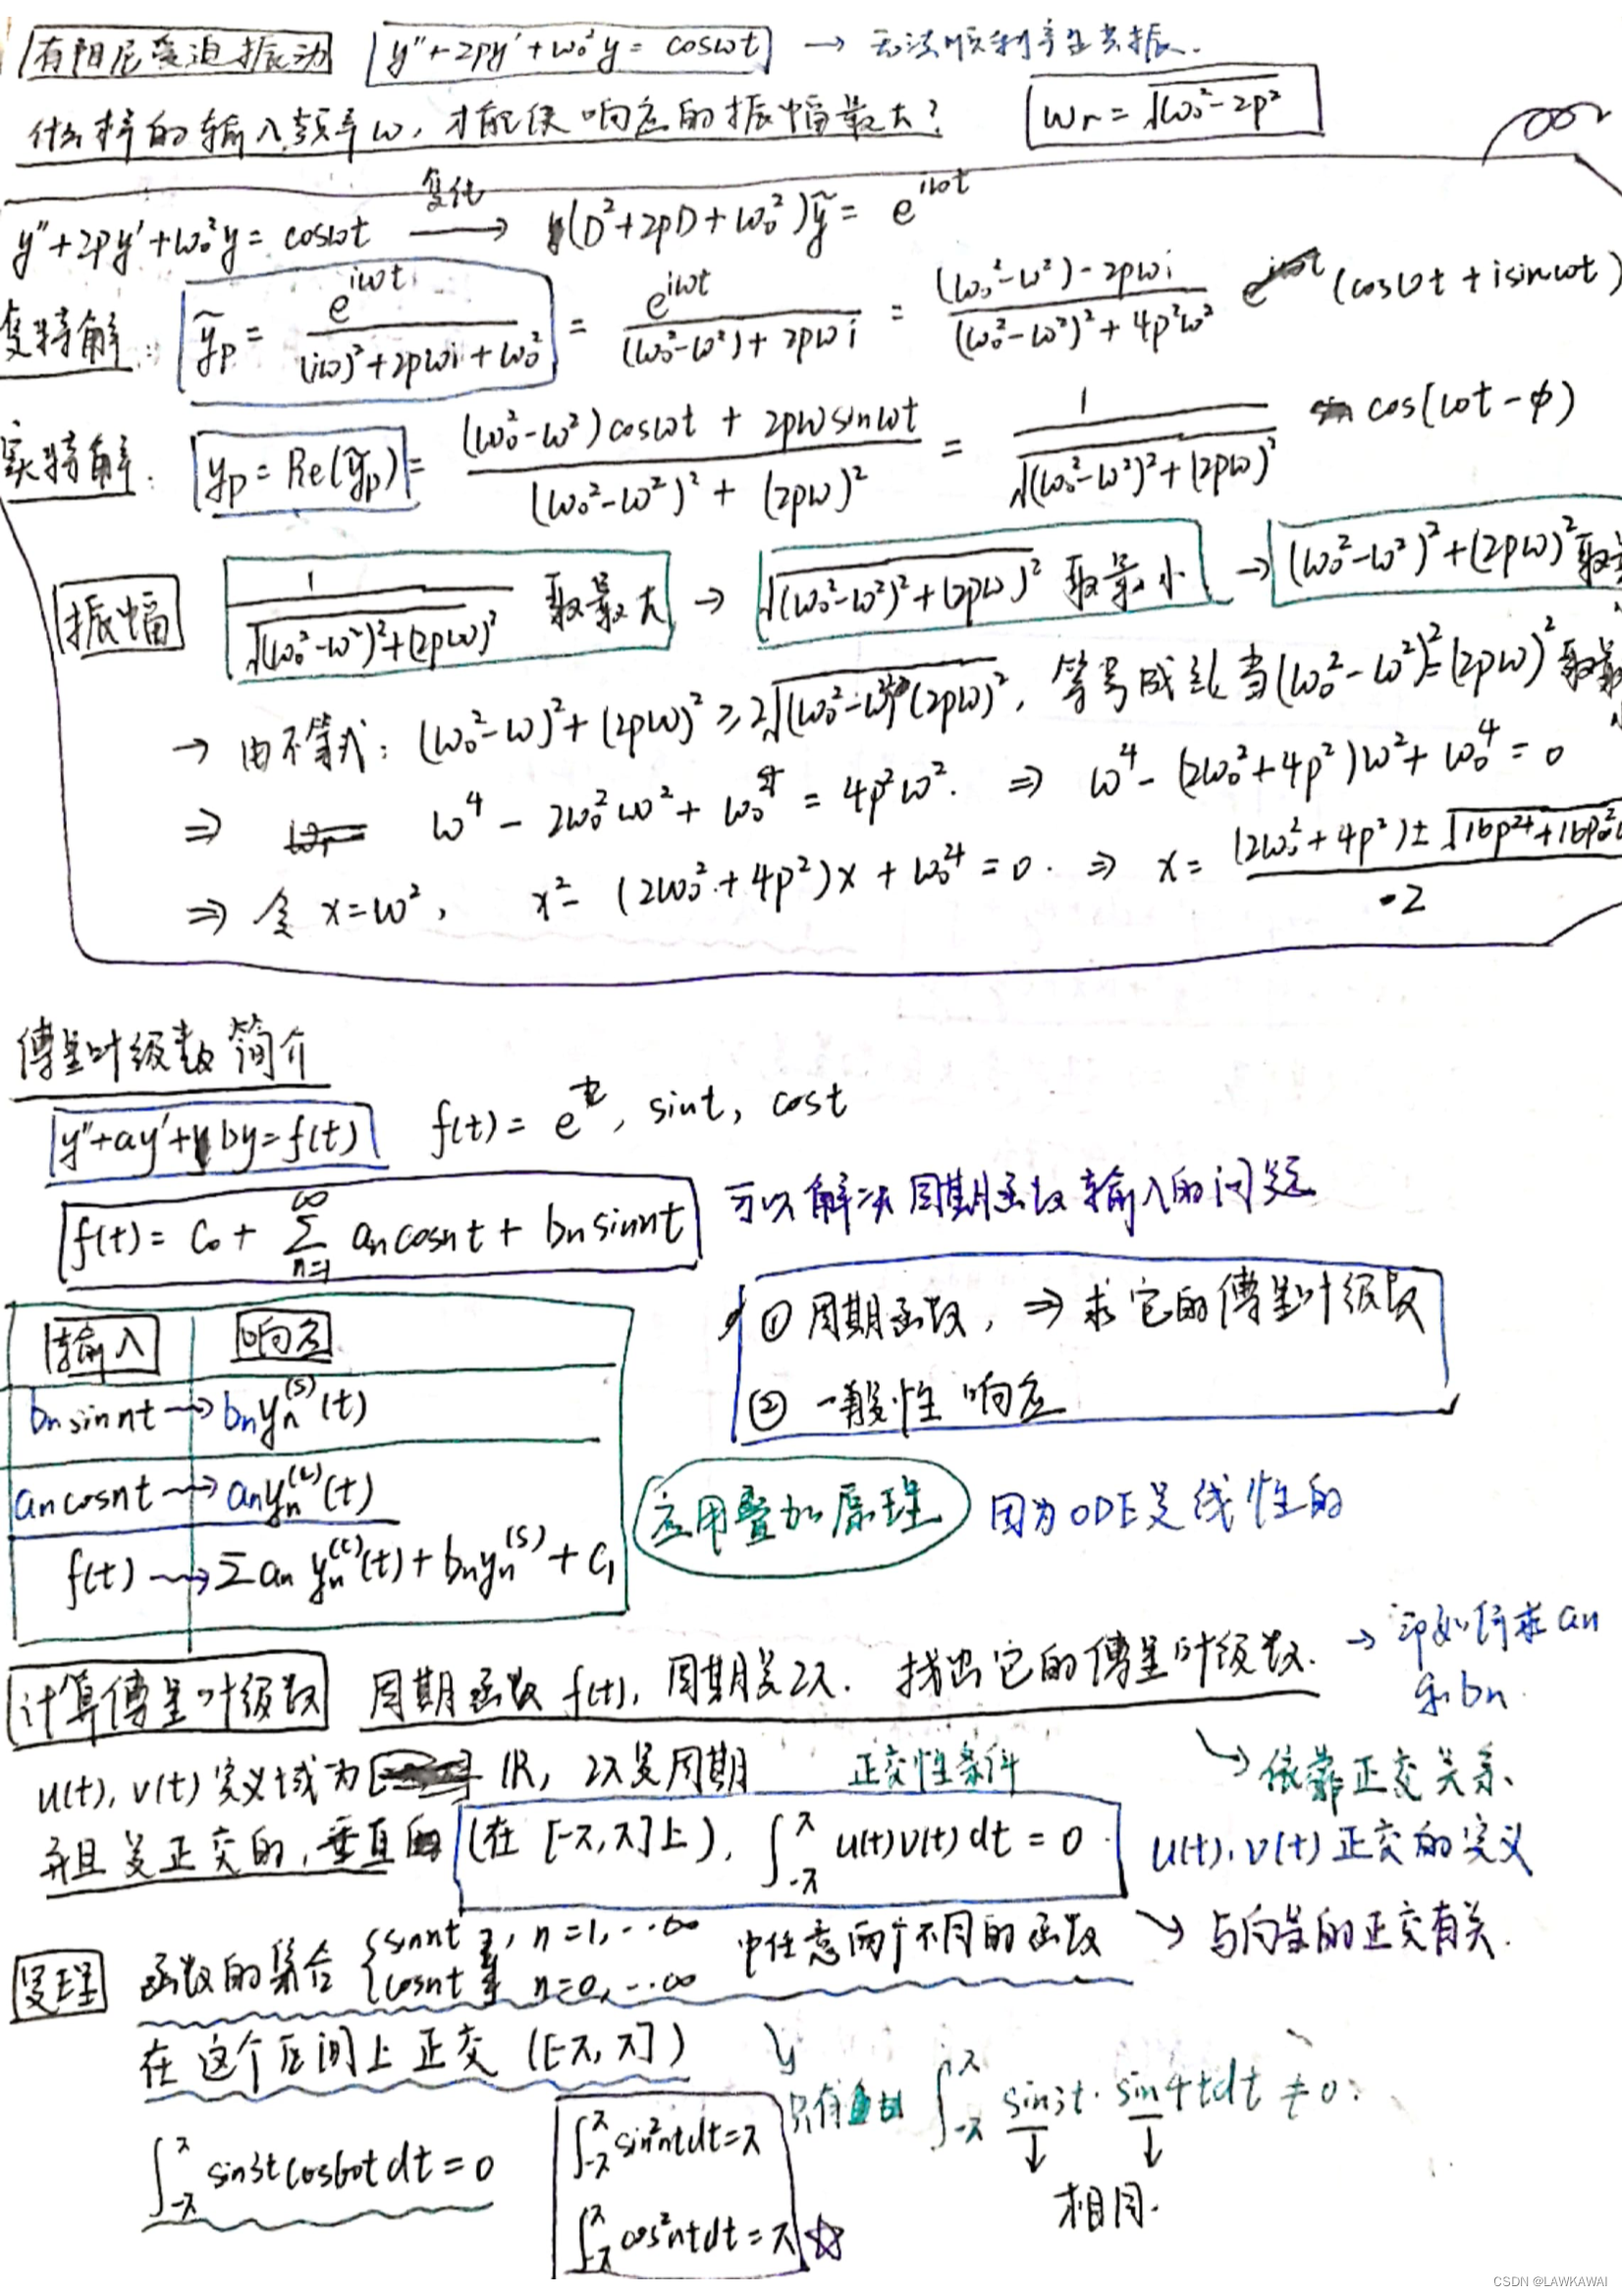 有阻尼受迫振动 y''+2py'+ω₀²y = cosωt → 无法顺利产生共振.
什么样的输入频率ω, 才能使响应的振幅最大? ωr = √(ω₀²-2p²)
y''+2py'+ω₀²y = cosωt 复化 → (D²+2pD+ω₀²)ỹ = e^{iωt}
复特解: ỹp = e^{iωt}/((iω)²+2pωi+ω₀²) = e^{iωt}/((ω₀²-ω²)+2pωi) = ((ω₀²-ω²)-2pωi)/((ω₀²-ω²)²+4p²ω²) (cosωt + isinωt)
实特解: yp = Re(ỹp) = ((ω₀²-ω²)cosωt + 2pωsinωt)/((ω₀²-ω²)² + (2pω)²) = 1/√((ω₀²-ω²)²+(2pω)²) cos(ωt-φ)
振幅 1/√((ω₀²-ω²)²+(2pω)²) 取最大 → √((ω₀²-ω²)²+(2pω)²) 取最小 → (ω₀²-ω²)²+(2pω)² 取
→ 由不等式: (ω₀²-ω)²+(2pω)² ≥ 2√((ω₀²-ω²)²(2pω)²), 等号成立当(ω₀²-ω²)²=(2pω)² 取
⇒ ω⁴ - 2ω₀²ω² + ω₀⁴ = 4p²ω². ⇒ ω⁴ - (2ω₀²+4p²)ω² + ω₀⁴ = 0
⇒ 令 x=ω², x² - (2ω₀²+4p²)x + ω₀⁴ = 0. ⇒ x = ((2ω₀²+4p²)±√(16p⁴+16p²ω₀²))/2
傅里叶级数简介
y''+ay'+by=f(t) f(t) = e^t, sint, cost
f(t) = C₀ + Σ_{n=1}^∞ aₙcosnt + bₙsinnt 可以解决周期函数输入的问题
① 周期函数, ⇒ 求它的傅里叶级数
② 一般性响应
输入 响应
bₙsinnt → bₙyₙ^(s)(t)
aₙcosnt → aₙyₙ^(c)(t)
f(t) → Σaₙyₙ^(c)(t)+bₙyₙ^(s)+C₁
应用叠加原理 因为ODE是线性的
计算傅里叶级数 周期函数 f(t), 周期是2π. 找出它的傅里叶级数. → 即如何求aₙ
和bₙ.
u(t), v(t) 定义域为 R, 2π是周期 正交性条件 ↘ 依靠正交关系
并且是正交的, 垂直的 (在[-π,π]上), ∫_{-π}^{π} u(t)v(t)dt = 0. u(t), v(t) 正交的定义
定理 函数的集合 {sinnt, n=1,…∞ 中任意两个不同的函数 ↘ 与向量的正交有关.
{cosnt} n=0,…∞
在这个区间上正交 ([-π,π])
只有 ∫_{-π}^{π} sin3t·sin4tdt ≠ 0.
∫_{-π}^{π} sin3tcos60tdt = 0 ∫_{-π}^{π} sin²ntdt=π
相同.
∫_{-π}^{π} cos²ntdt=π ☆
CSDN @LAWKAWAI